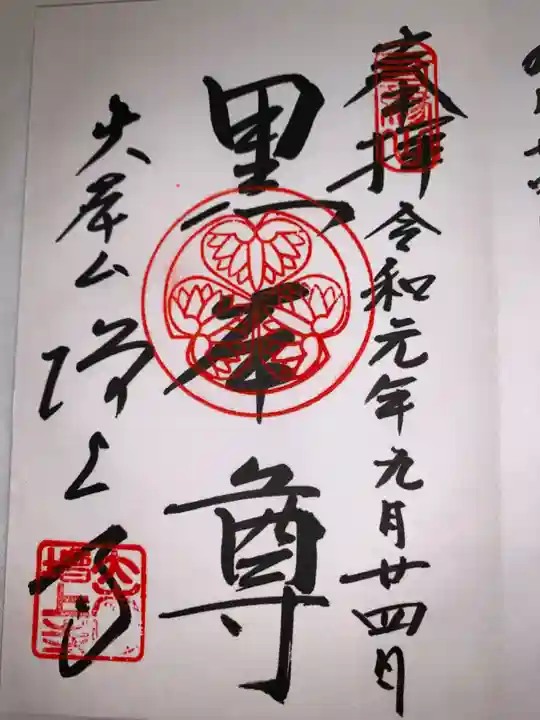 奉拝 令和元年九月廿四日
黒本尊
大本山 増上寺
増上寺